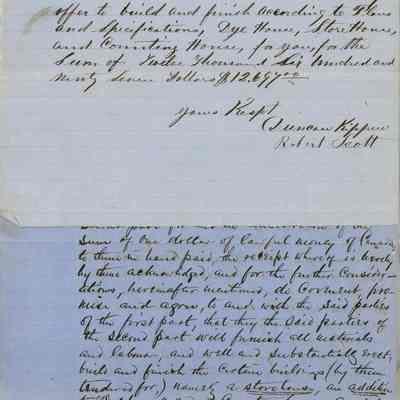 offer to build and finish according to Plans
and specifications, Dye House, Store House,
and Counting House, for you, for the
Sum of Twelve Thousand Six Hundred and
Ninty Seven Dollars $12,697.00
Yours Respt
Duncan Kippen
Robert Scott
sum of one dollar of lawful money of Canada
to them in hand paid, the receipt whereof is hereby
by them acknowledged, and for the further Consider-
ations, hereinafter mentioned, do Covenant, pro-
mise and agree, to and with the said parties
of the first part, that they the said parties of
the second part will furnish all materials
and labour, and well and substantially erect,
build and finish the Certain buildings (by them
tendered for,) namely a storehouse, an addition